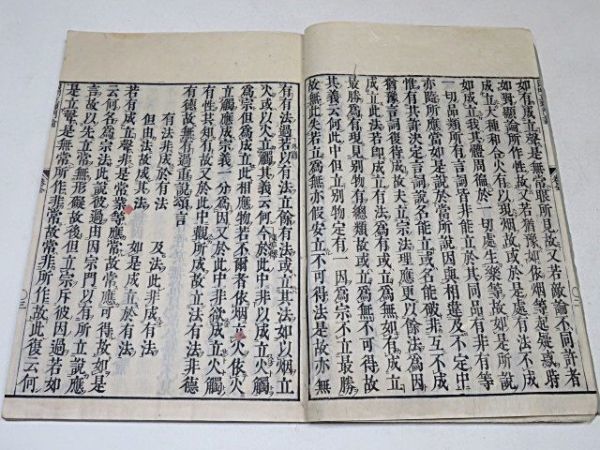 如有成立聲是無常眼所見故又若敵論不同許者
如對顯論所作性故又若猶豫如依烟等起疑惑時
成立大種和合火有以現烟故或於是處有法不成
如成立我其體周徧於一切處生樂等故如是所說
一切品類所有言詞皆非能立於其同品有非有等
亦隨所應當如是說於當所說因與相違及不定中
惟有共許決定言詞說名能立或名能破非互不成
猶豫言詞復待成故夫立宗法理應更以餘法爲因
成立此法若卽成立有法爲有或立爲無如有成立
最勝爲有現見別物有總類故或立爲無不可得故
其義云何此中但立別物定有一因爲宗不立最勝
故無此失若立爲無亦假安立不可得法是故亦無
有有法過若以有法立餘有法或立其法如以烟立
火或以火立觸其義云何今於此中非以成立火觸
爲宗但爲成立此相應物若不爾者依烟立火依火
立觸應成宗義一分爲因又於此中非欲成立火觸
有性共知有故又於此中觀所成故立法有法非德
有德故無有過重說頌言
有法非成於有法 及法此非成有法
但由法故成其法 如是成立於有法
若有成立聲非是常業等應常故常應可得故如是
云何名爲宗法此說彼過由因宗門以有所立說應
言故以先立常無形礙故後但立宗斥彼因過若如
是立聲是無常所作非常故常非所作故此復云何